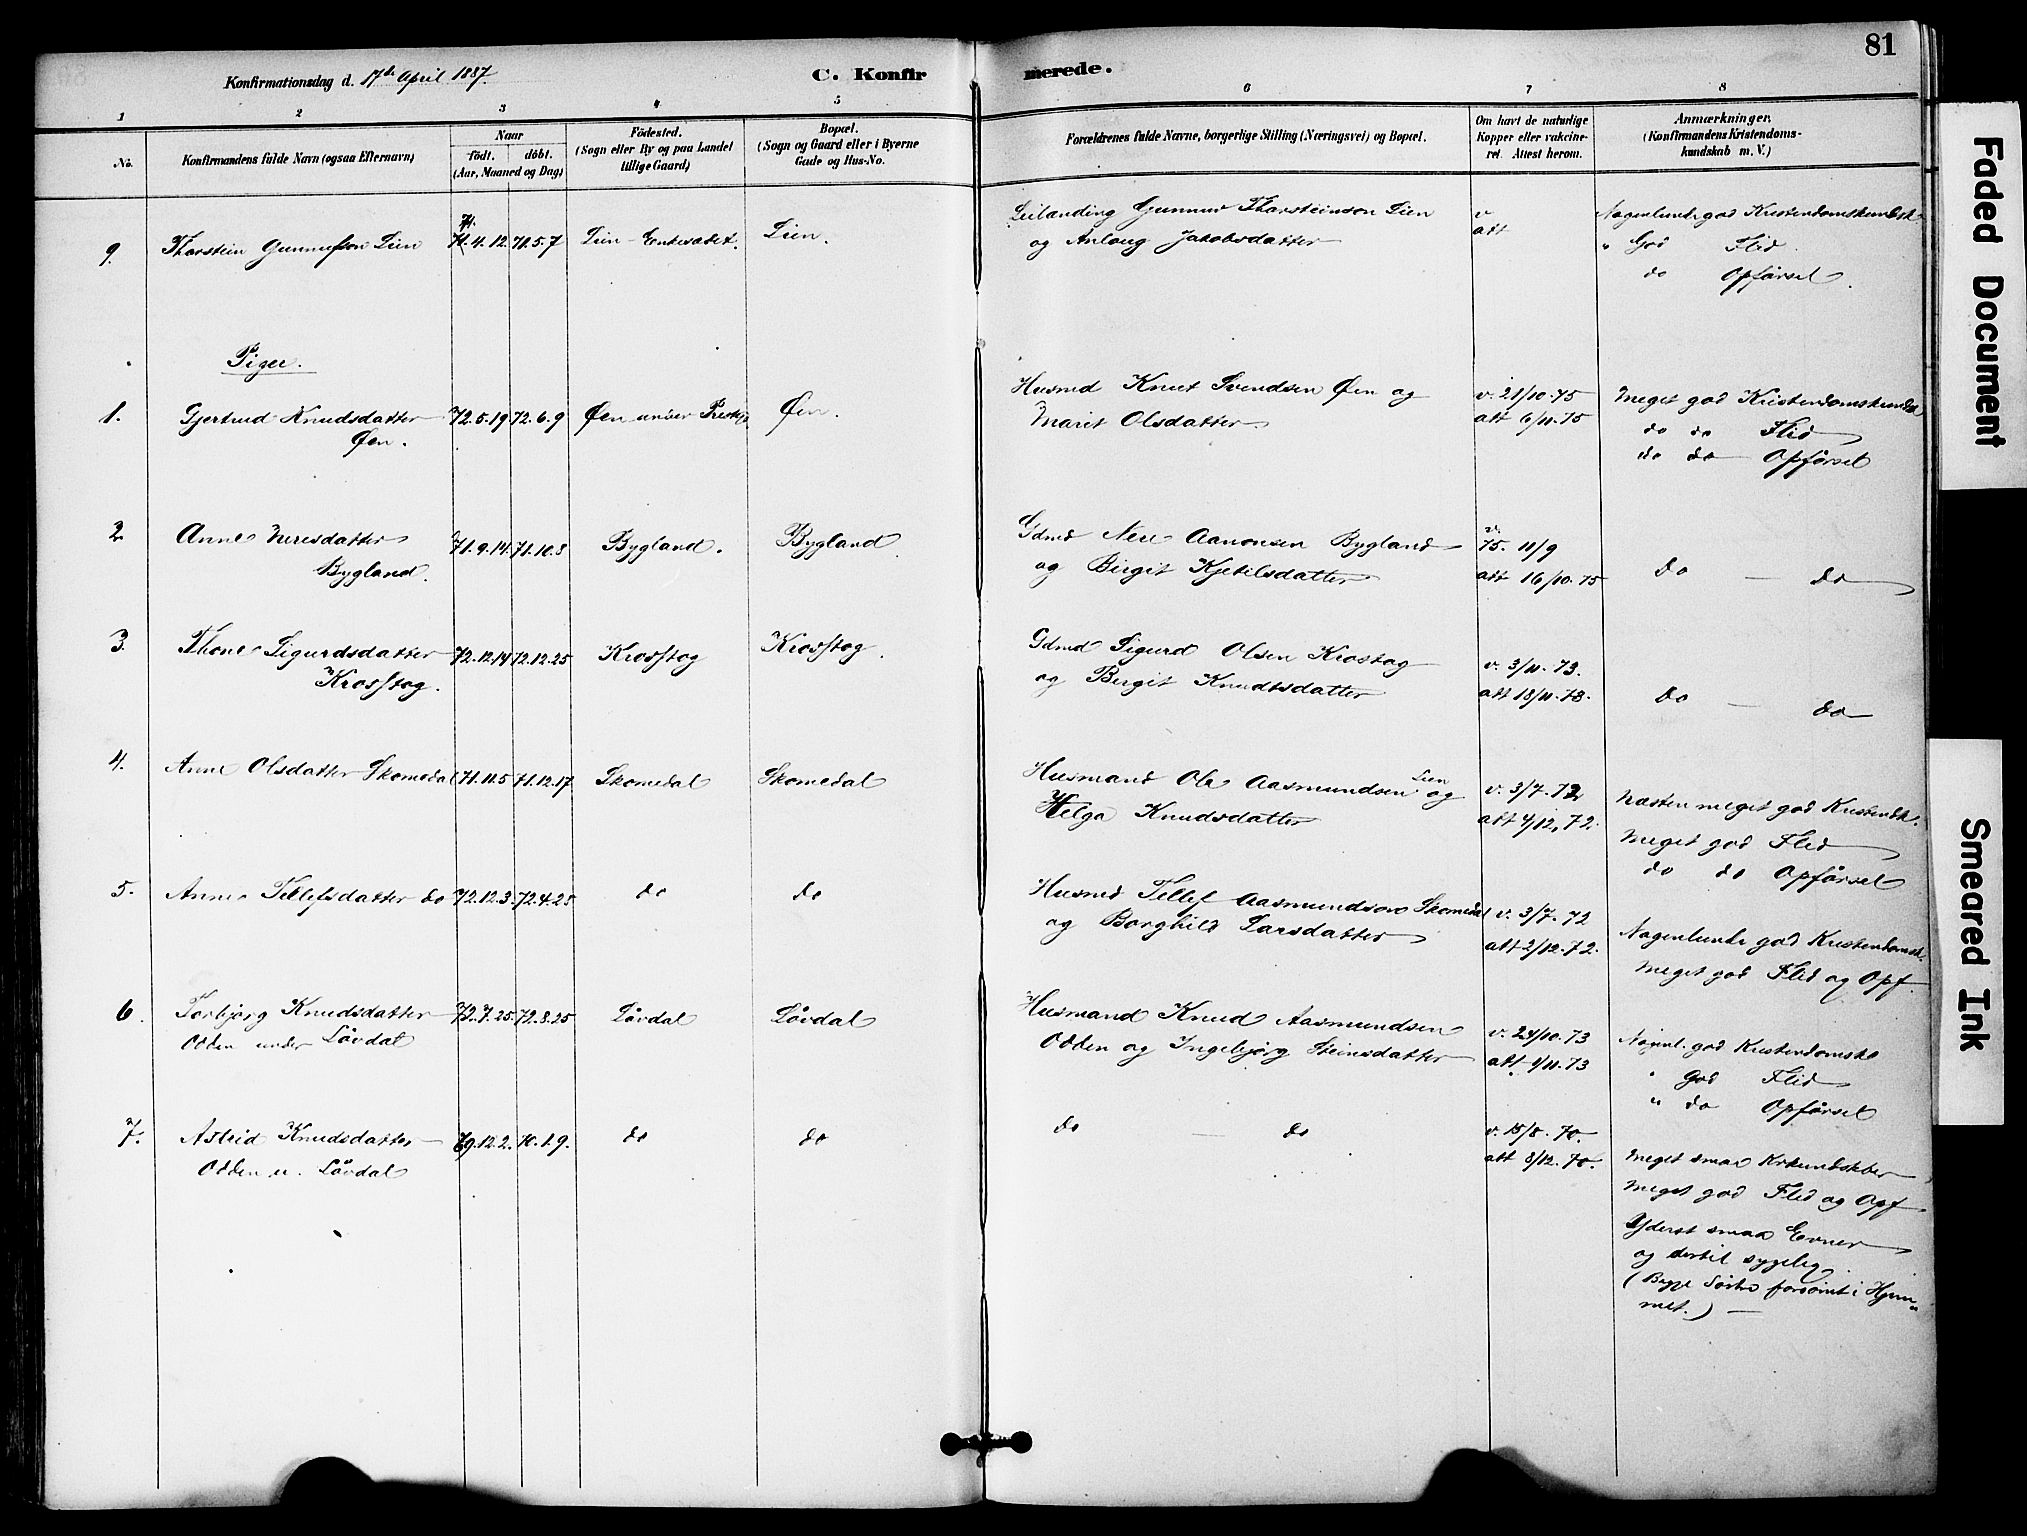 81
Konfirmationsdag d. 17de April 1887.
C. Konfirmerede.
1 2 3 4 5 6 7 8
No.
Konfirmandens fulde Navn (ogsaa Efternavn)
Naar
födt. döbt.
(Aar, Maaned og Dag)
Födested.
(Sogn eller By og paa Landet
tillige Gaard)
Bopæl.
(Sogn og Gaard eller i Byerne
Gade og Hus-No.
Forældrenes fulde Navne, borgerlige Stilling (Næringsvei) og Bopæl.
Om havt de naturlige
Kopper eller vakcine-
ret. Attest herom.
Anmærkninger.
(Konfirmandens Kristendoms-
kundskab m. V.)
9. Tharstein Gunnufson Lien 71.4.12. 71.5.7 Lien - Enkesædet. Lien.
Leilænding Gunnuv Tharsteinson Lien
og Anlaug Jakobsdatter
v
att
Nogenlunde god Kristendomskundsk.
" God Flid
do Opförsel.
Piger.
1. Gjertrud Knudsdatter
Øen.
72.5.19 72.6.9 Øen under Prestg. Øen.
Husmd Knut Svendsen Øen og
Marit Olsdatter
v. 21/10.75
att 6/11.75
Meget god Kristendomskundsk
do do Flid
do do Opförsel
2 Anne Neresdatter
Bygland.
71.9.14. 71.10.8 Bygland. Bygland
Gdmd Nere Aanonsen Bygland
og Birgit Kjetilsdatter
v.
75. 11/9
att 16/10.75
Do - do
3. Thone Sigurdsdatter
Krosstog.
72.12.14 72.12.25 Krosstog Krosstog.
Gdmd Sigurd Olsen Krostog
og Bergit Knudtsdatter
v. 3/11.73.
att 18/11.73.
Do - do
4. Anne Olsdatter Skomedal 71.11.5 71.12.17 Skomedal Skomedal
Husmand Ole Aasmundsen Lien og
Helga Knudsdatter
v. 3/7.72
att 4/12.72.
Næsten meget god Kristendsk.
Meget god Flid
do do Opförsel
5. Anne Tellefsdatter do 72.12.3. 72.4.28 do do
Husmd Tellef Aasmundson Skomedal
og Borghild Larsdatter
v. 3/7.72
att 2/12.72.
Nogenlunde god Kristendomsk.
Meget god Flid og Opf.
6. Torbjörg Knudsdatter
Odden under Lövdal
72.7.25. 72.8.25 Lövdal Lövdal
Husmand Knud Aasmundsen
Odden og Ingebjörg Steinsdatter
v. 24/10.73
att 1/11.73
Nogenl. god Kristendomsk
" God Flid
" do Opförsel
7. Astrid Knudsdatter
Odden u. Lövdal
69.12.2. 70.1.9. do do
do - do
v. 15/8.70.
att 8/12.70.
Meget smaa Krkundskber
Meget god Flid og Opf
Yderst smaa Evner
og dertil sygelig.
(Begge Söstre forsömt i Hjem-
met.) -
Faded Document
Smeared Ink